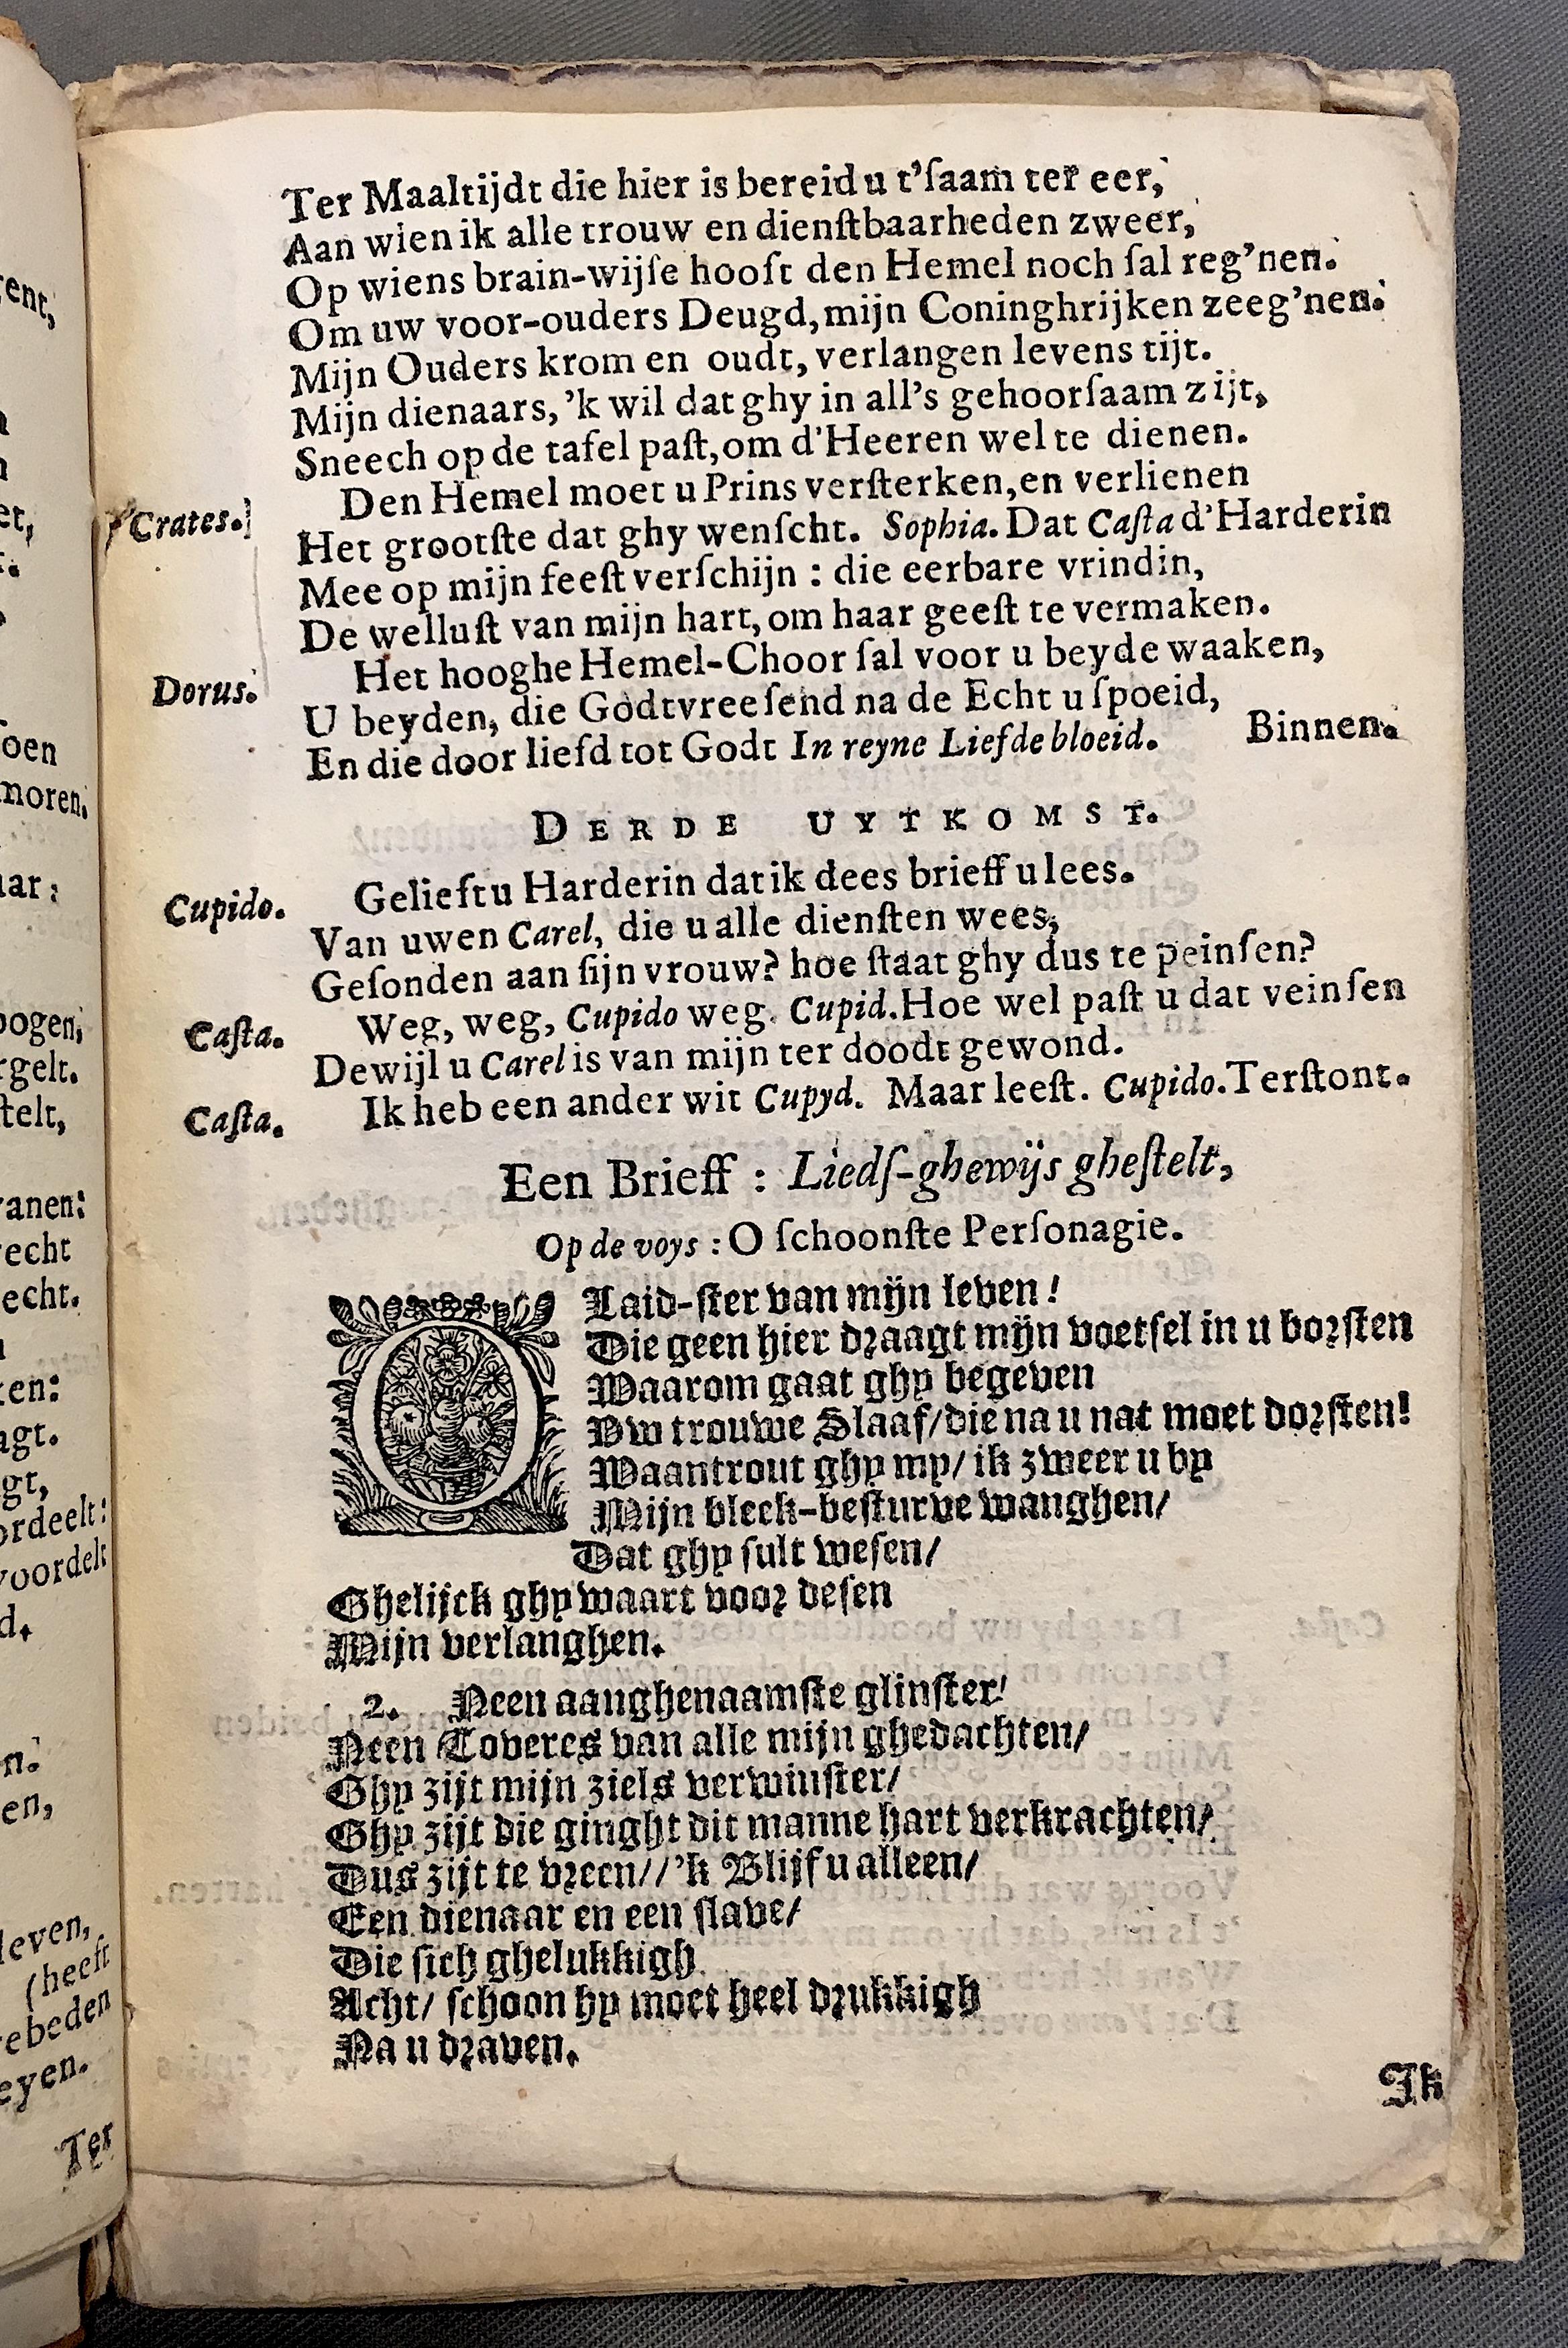 Ter Maaltijdt die hier is bereid u t'ſaam ter eer,
Aan wien ik alle trouw en dienſtbaarheden zweer,
Op wiens brain-wijſe hooft den Hemel noch ſal reg'nen.
Om uw voor-ouders Deugd, mijn Coninghrijken zeeg'nen.
Mijn Ouders krom en oudt, verlangen levens tijt.
Mijn dienaars, 'k wil dat ghy in all's gehoorſaam zijt,
Sneech op de tafel paſt, om d'Heeren wel te dienen.
Crates. Den Hemel moet u Prins verſterken, en verlienen
Het grootſte dat ghy wenſcht. Sophia. Dat Caſta d'Harderin
Mee op mijn feeſt verſchijn : die eerbare vrindin,
De welluſt van mijn hart, om haar geeſt te vermaken.
Dorus. Het hooghe Hemel-Choor ſal voor u beyde waaken,
U beyden, die Godtvreeſend na de Echt u ſpoeid,
En die door liefd tot Godt In reyne Liefde bloeid. Binnen.
DERDE UYTKOMST.
Cupido. Gelieft u Harderin dat ik dees brieff u lees.
Van uwen Carel, die u alle dienſten wees,
Geſonden aan ſijn vrouw? hoe ſtaat ghy dus te peinſen?
Caſta. Weg, weg, Cupido weg. Cupid. Hoe wel paſt u dat veinſen
Dewijl u Carel is van mijn ter doodt gewond.
Caſta. Ik heb een ander wit Cupyd. Maar leeſt. Cupido. Terſtont.
Een Brieff : Liedſ-ghewijs gheſtelt,
Op de voys : O ſchoonſte Perſonagie.
O Laid-ſter van mijn leven!
Die geen hier draagt mijn voetſel in u borſten
Waarom gaat ghy begeven
Vw trouwe Slaaf/ die na u nat moet dorſten!
Waantrout ghy my/ ik zweer u by
Mijn bleck-beſturve wanghen/
Dat ghy ſult weſen/
Ghelijck ghy waart voor deſen
Mijn verlanghen.
2. Neen aanghenaamſte glinſter/
Neen Toveres van alle mijn ghedachten/
Ghy zijt mijn ziels verwinſter/
Ghy zijt die ginght dit manne hart verkrachten/
Dus zijt te vreen// 'k Blijf u alleen/
Een dienaar en een ſlave/
Die ſich ghelukkigh
Acht/ ſchoon hy moet heel drukkigh
Na u draven.
Ik